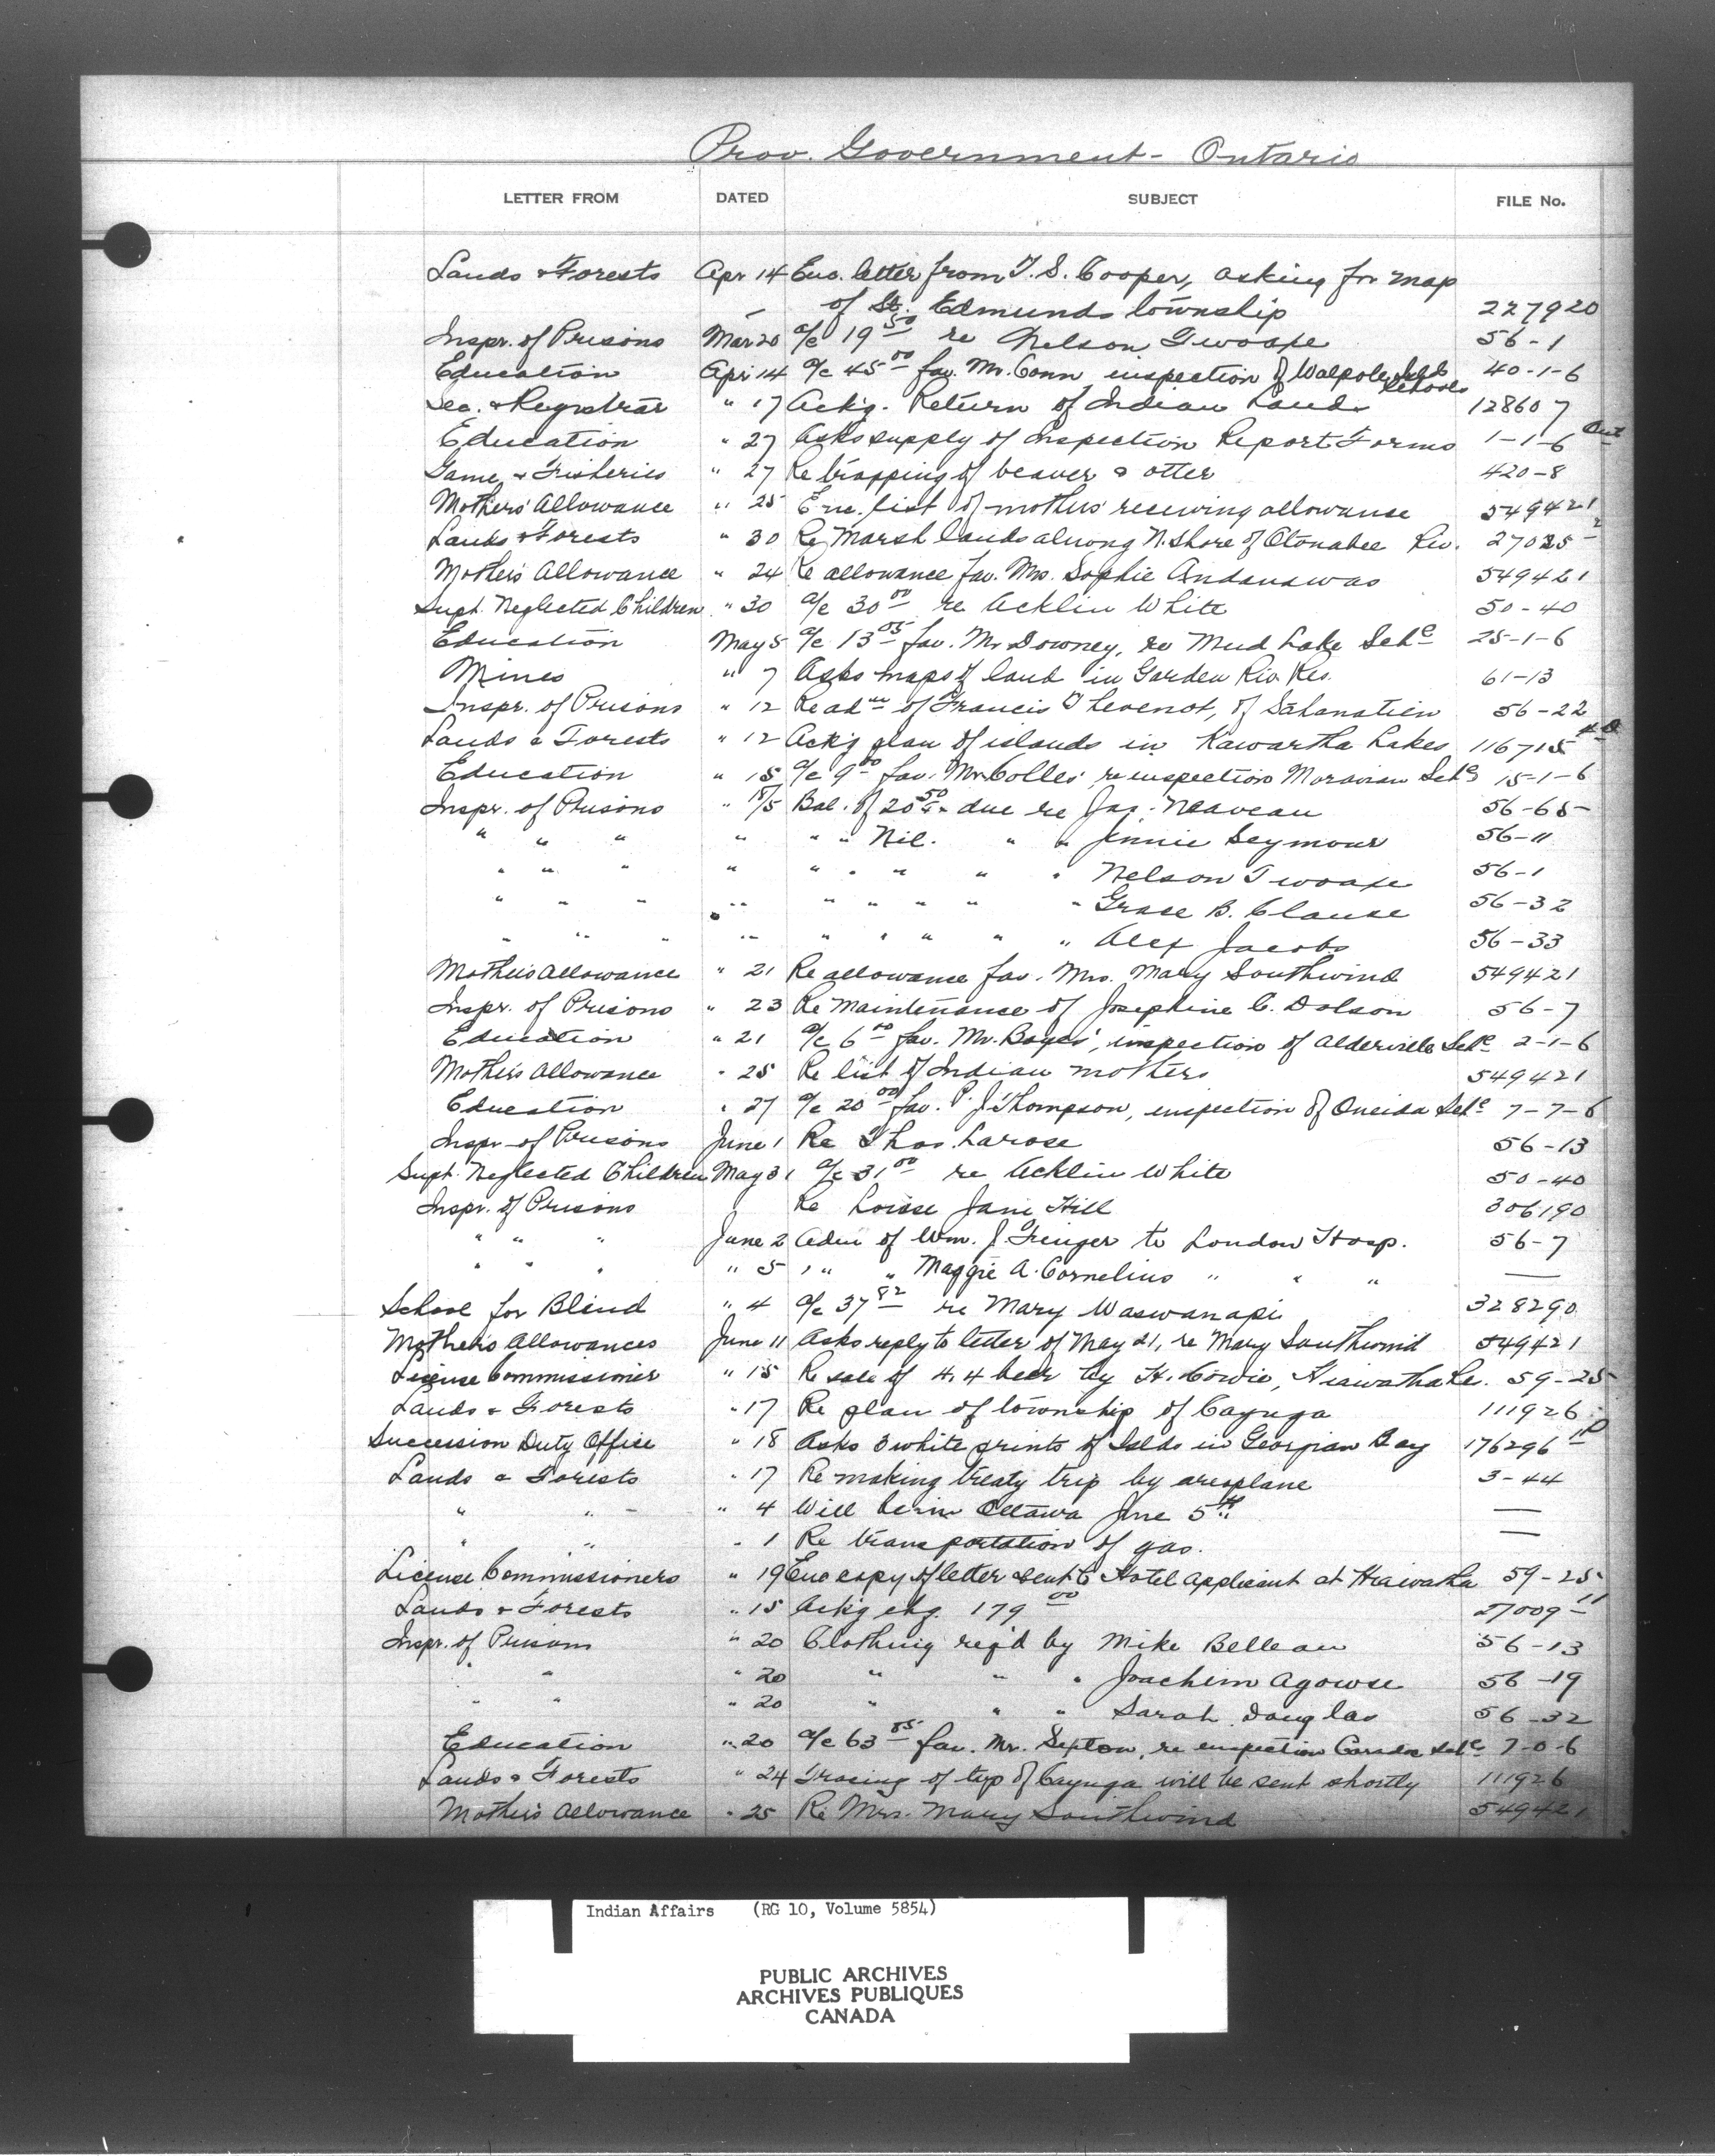 Prov. Government - Ontario
LETTER FROM DATED SUBJECT FILE No.
Lands & Forests Apr 14 Enc. letter from T. S. Cooper, asking for map
of St. Edmunds township 227920
Inspr. of Prisons Mar 20 a/c 19 50 re Nelson Twoaxe 56-1
Education Apr 14 a/c 45 00 fav. Mr. Conn inspection of Walpole Isld Schools 40-1-6
Sec. & Registrar " 17 Ack'g. Return of Indian Lands 128607
Education " 27 Asks supply of Inspection Report Forms 1-1-6 Ont
Game & Fisheries " 27 Re trapping of beaver & otter 420-8
Mothers' Allowance " 25 Enc. list of mothers receiving allowance 549421
Lands & Forests " 30 Re Marsh lands along N. Shore of Otonabee Riv. 27025-2
Mothers Allowance " 24 Re allowance fav. Mrs. Sophie Andanawas 549421
Supt. Neglected Children " 30 a/c 30 00 re Acklin White 50-40
Education May 5 a/c 13 05 fav. Mr Downey, re Mud Lake Schl 25-1-6
Mines " 7 Asks maps of land in Garden Riv. Res. 61-13
Inspr. of Prisons " 12 Re adm of Francis Thevenot, of 56-22
Lands & Forests " 12 Ack'g plan of islands in Kawartha Lakes 116715
Education " 15 a/c 9 00 fav. Mr Colles' re inspection Moravian Schl 15-1-6
Inspr. of Prisons " 18/5 Bal. of 20 50 due re Jas. Neaveau 56-65-
" " " " " " Nil. " " Jennie Seymour 56-11
" " " " " " " " " Nelson Twoaxe 56-1
" " " " " " " " " Grace B. Clause 56-32
" " " " " " " " " Alex Jacobs 56-33
Mothers Allowance " 21 Re allowance fav. Mrs. Mary Southwind 549421
Inspr. of Prisons " 23 Re Maintenance of Josephine C. Dolson 56-7
Education " 21 a/c 6 00 fav. Mr. Boyes', inspection of Alderville Schl 2-1-6
Mothers Allowance " 25 Re list of Indian mothers 549421
Education " 27 a/c 20 00 fav. P. J. Thompson, inspection of Oneida Schl 7-7-6
Inspr of Prisons June 1 Re Thos. Larose 56-13
Supt. Neglected Children May 31 a/c 31 00 re Acklin White 50-40
Inspr. of Prisons Re Loisse Jane Hill 306190
" " " June 2 Adm of Wm. J. Fringer to London Hosp. 56-7
" " " " 5 " " " Maggie A. Cornelius " " " —
School for Blind " 4 a/c 37 82 re Mary Waswanapi 328290
Mothers Allowances June 11 Asks reply to letter of May 21, re Mary Southwind 549421
License Commissioner " 15 Re sale of 4.4 beer by H. Cowie, Hiawatha Re. 59-25
Lands & Forests " 17 Re plan of township of Cayuga 111926
Succession Duty Office " 18 Asks 3 white prints of Islds in Georgian Bay 176296
Lands & Forests " 17 Re making treaty trip by areoplane 3-44
" " " 4 Will be in Ottawa June 5th —
" " " 1 Re transportation of gas. —
License Commissioners " 19 Enc copy of letter sent to Hotel Applicant at Hiawatha 59-25
Lands & Forests " 15 Ack'g chq. 179 00 27009-11
Inspr. of Prisons " 20 Clothing req'd by Mike Belleau 56-13
" " " 20 " " " Joachim Agowse 56-19
" " " 20 " " " Sarah Douglas 56-32
Education " 20 a/c 63 85 fav. Mr. Sexton, re inspection Caradoc Schl 7-0-6
Lands & Forests " 24 Tracing of twp of Cayuga will be sent shortly 111926
Mothers Allowance " 25 Re Mrs. Mary Southwind 549421
Indian Affairs (RG 10, Volume 5854)
PUBLIC ARCHIVES
ARCHIVES PUBLIQUES
CANADA